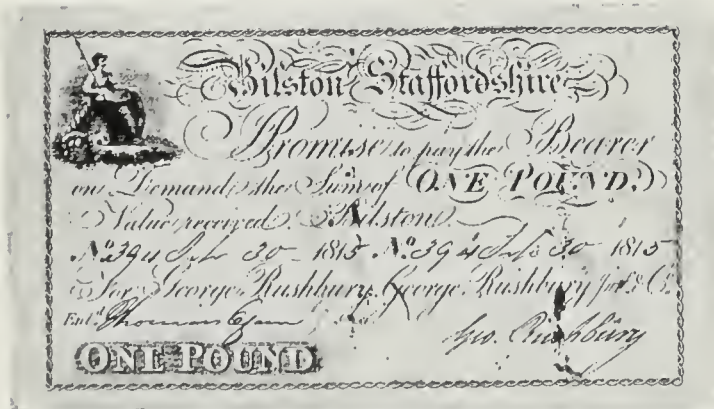 Bilston Staffordshire
I Promise to pay the Bearer
on Demand the Sum of ONE POUND.
Value received. Bilston
No. 394 30 1815 No. 394 30 1815
For George Rushbury, George Rushbury Junr. & Co.
Entd. Thomas
Geo. Rushbury
ONE POUND